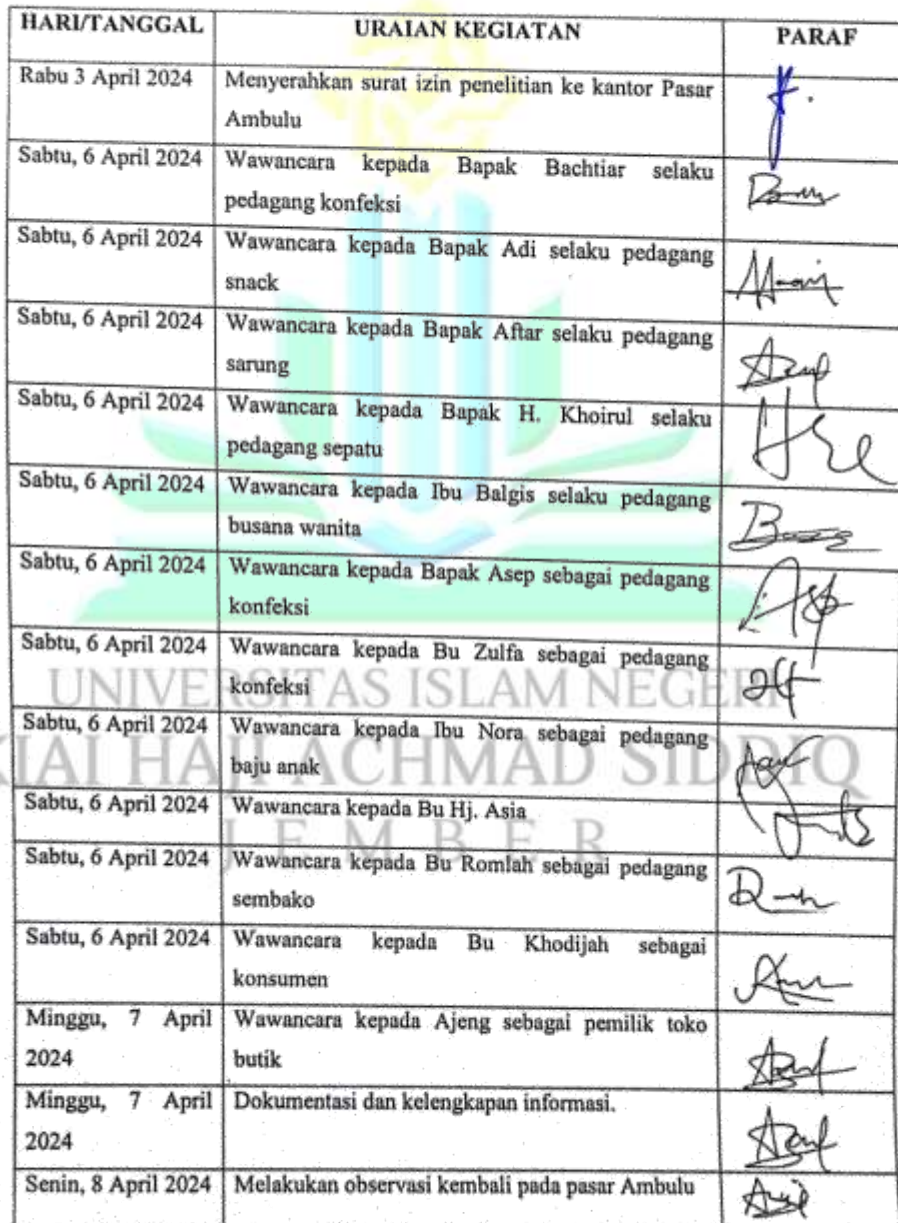 HARI/TANGGAL URAIAN KEGIATAN PARAF
Rabu 3 April 2024 Menyerahkan surat izin penelitian ke kantor Pasar
Ambulu
Sabtu, 6 April 2024 Wawancara kepada Bapak Bachtiar selaku
pedagang konfeksi
Sabtu, 6 April 2024 Wawancara kepada Bapak Adi selaku pedagang
snack
Sabtu, 6 April 2024 Wawancara kepada Bapak Aftar selaku pedagang
sarung
Sabtu, 6 April 2024 Wawancara kepada Bapak H. Khoirul selaku
pedagang sepatu
Sabtu, 6 April 2024 Wawancara kepada Ibu Balgis selaku pedagang
busana wanita
Sabtu, 6 April 2024 Wawancara kepada Bapak Asep sebagai pedagang
konfeksi
Sabtu, 6 April 2024 Wawancara kepada Bu Zulfa sebagai pedagang
konfeksi
UNIVERSITAS ISLAM NEGERI
Sabtu, 6 April 2024 Wawancara kepada Ibu Nora sebagai pedagang
baju anak
KIAI HAJI ACHMAD SIDDIQ
Sabtu, 6 April 2024 Wawancara kepada Bu Hj. Asia
JEMBER
Sabtu, 6 April 2024 Wawancara kepada Bu Romlah sebagai pedagang
sembako
Sabtu, 6 April 2024 Wawancara kepada Bu Khodijah sebagai
konsumen
Minggu, 7 April Wawancara kepada Ajeng sebagai pemilik toko
2024 butik
Minggu, 7 April Dokumentasi dan kelengkapan informasi.
2024
Senin, 8 April 2024 Melakukan observasi kembali pada pasar Ambulu